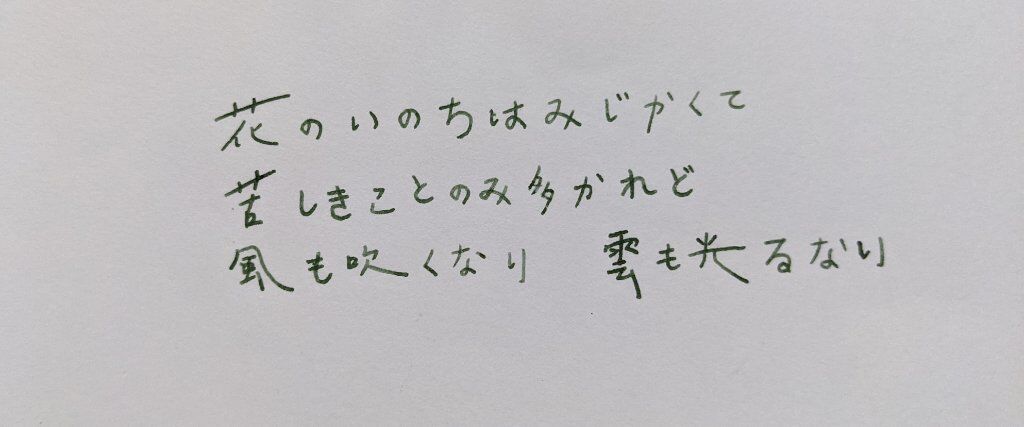 花のいのちはみじかくて
苦しきことのみ多かれど
風も吹くなり　雲も光るなり